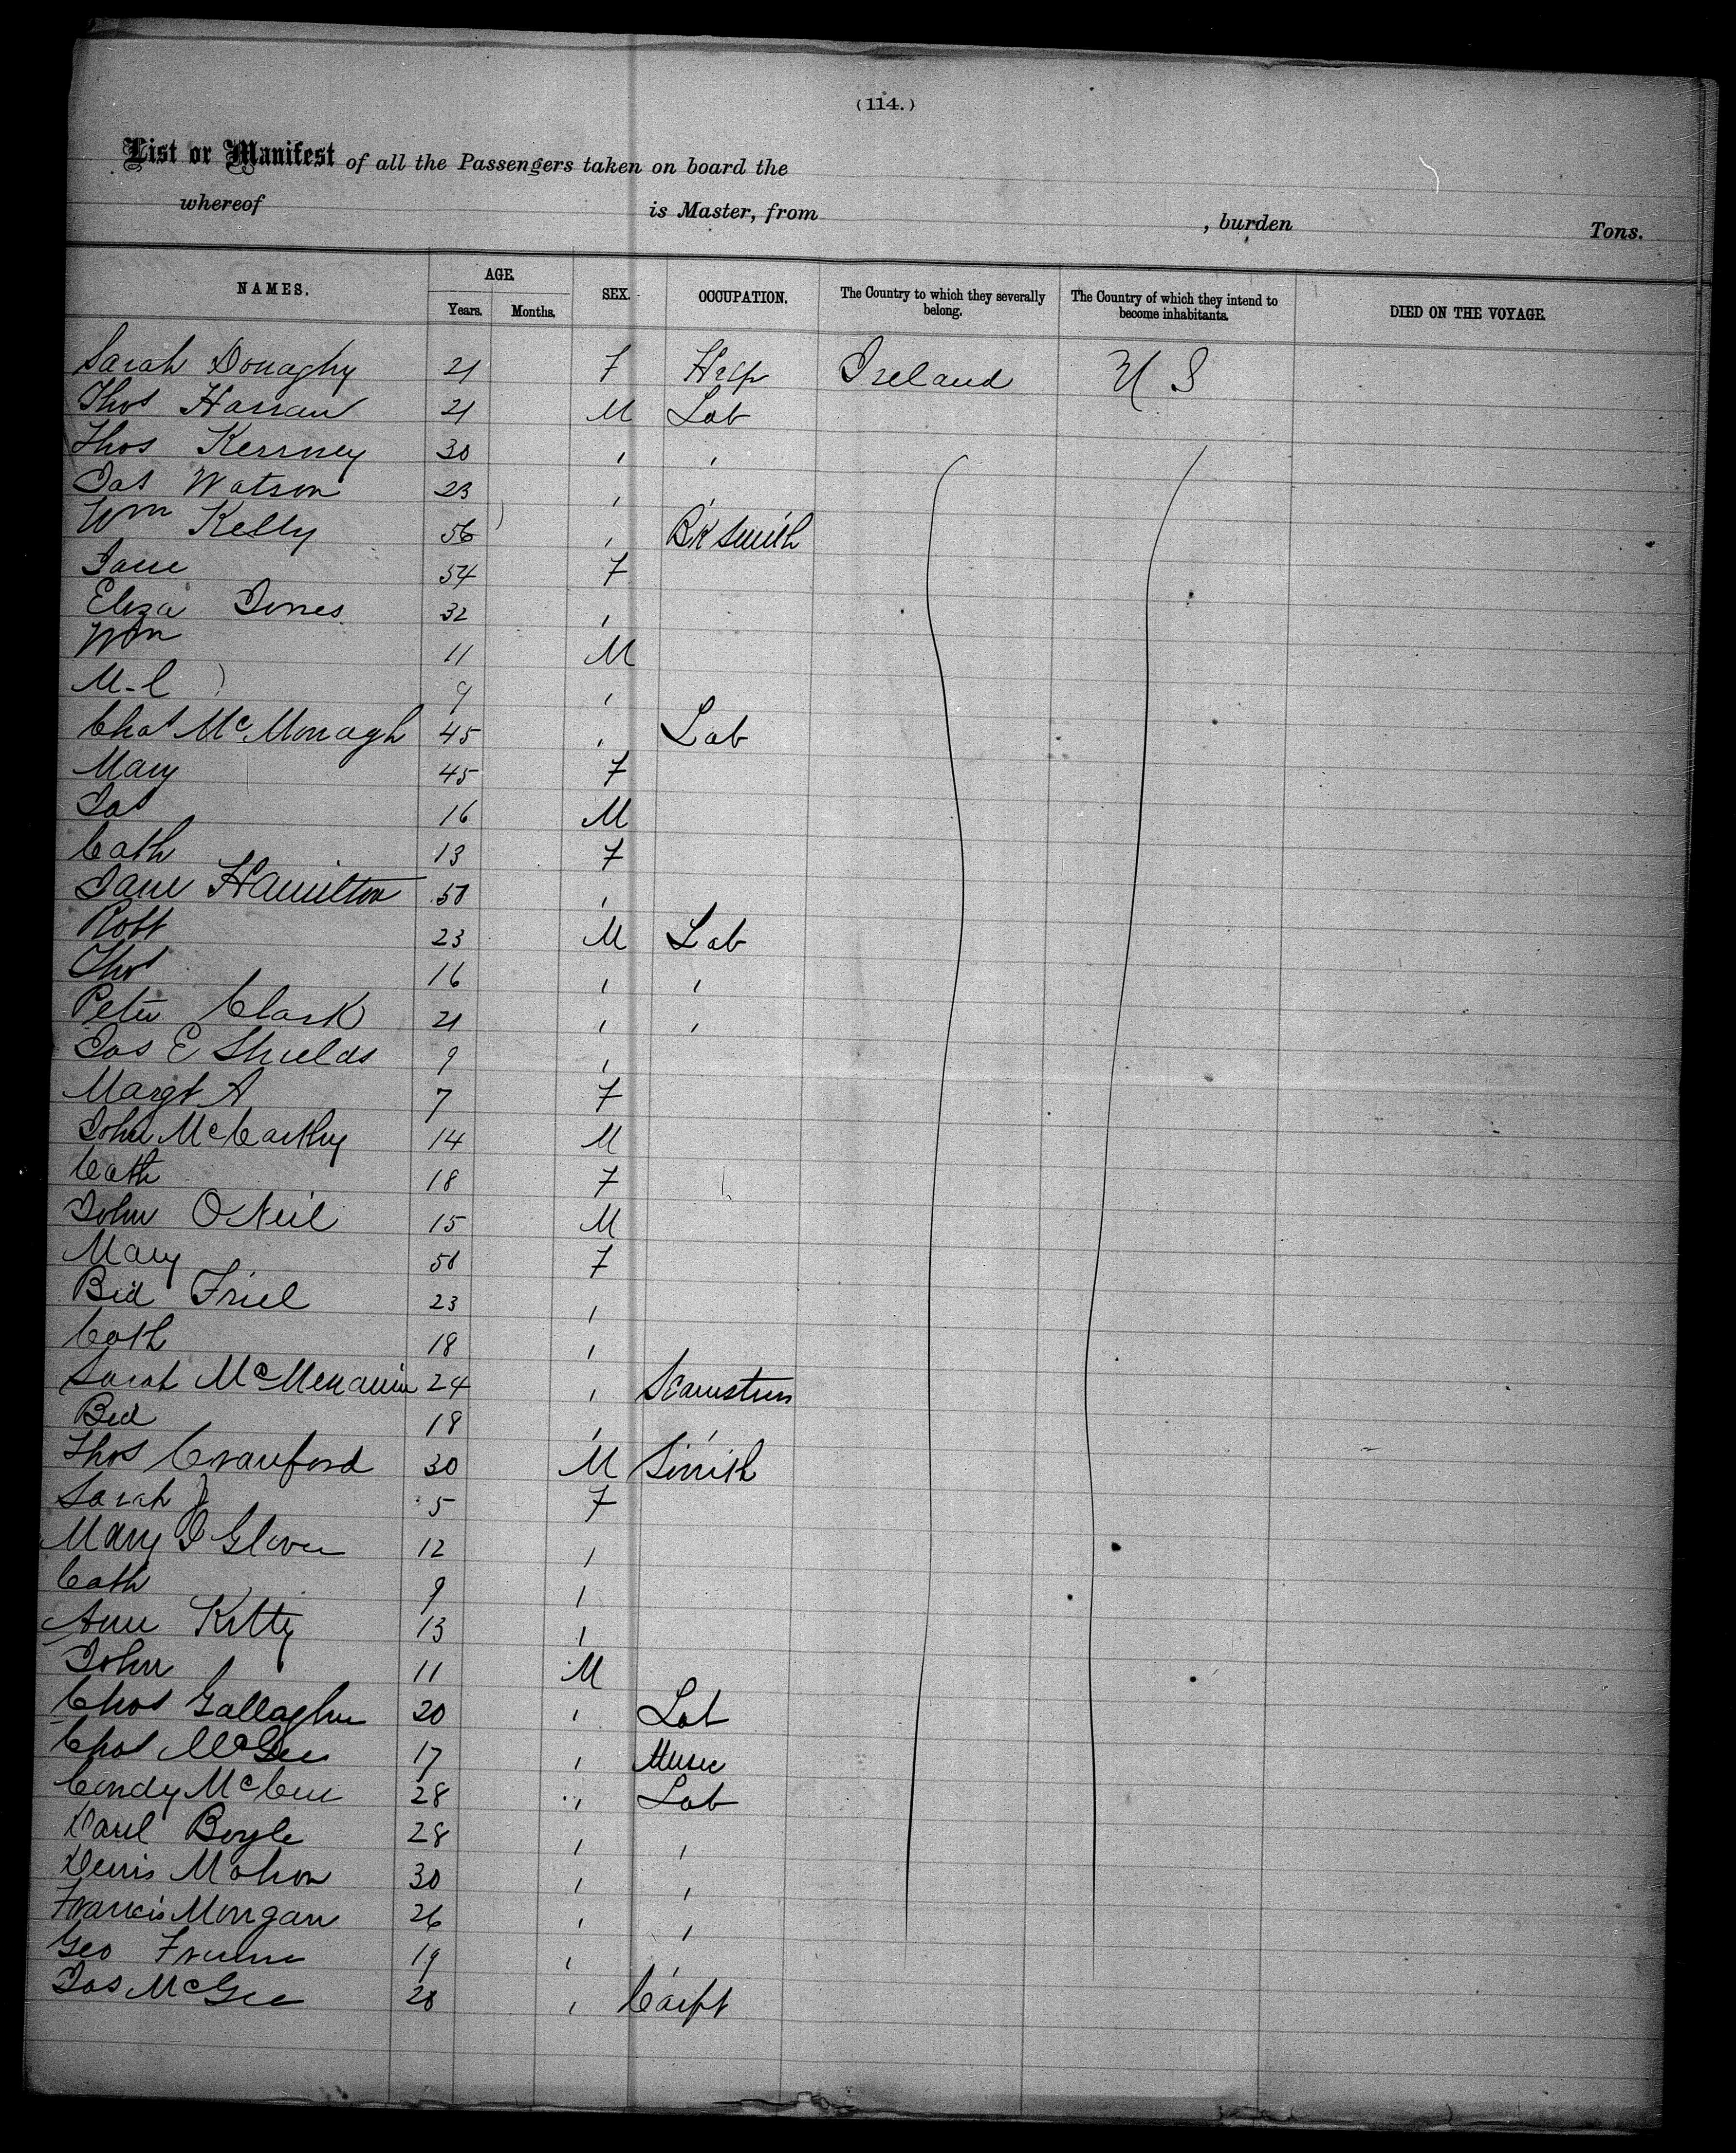 (114.)
List or Manifest of all the Passengers taken on board the
whereof is Master, from , burden Tons.
NAMES. AGE. SEX. OCCUPATION. The Country to which they severally belong. The Country of which they intend to become inhabitants. DIED ON THE VOYAGE.
Years. Months.
Sarah Donaghy 21 F Help Ireland U S
Thos Harran 21 M Lab
Thos Kerrney 30 " "
Jas Watson 23 " "
Wm Kelly 56 " Bk Smith
Jane 54 F
Eliza Jones 32 "
Wm 11 M
M-l 9 "
Chas McMonagh 45 " Lab
Mary 45 F
Jas 16 M
Cath 13 F
Jane Hamilton 50 "
Robt 23 M Lab
Thos 16 " "
Peter Clark 21 " "
Jas E Shields 9 "
Margt A 7 F
John McCarthy 14 M
Cath 18 F
John O Neil 15 M
Mary 50 F
Bid Friel 23 "
Cath 18 "
Sarah McMenamin 24 " Seamstress
Bid 18 " "
Thos Crawford 30 M Smith
Sarah J 5 F
Mary J Glover 12 "
Cath 9 "
Ann Kitty 13 "
John 11 M
Chas Gallagher 20 " Lab
Chas McGee 17 " Music
Condy McCue 28 " Lab
Danl Boyle 28 " "
Denis Mahon 30 " "
Francis Morgan 26 " "
Geo 19 " "
Jas McGee 20 " Carpt